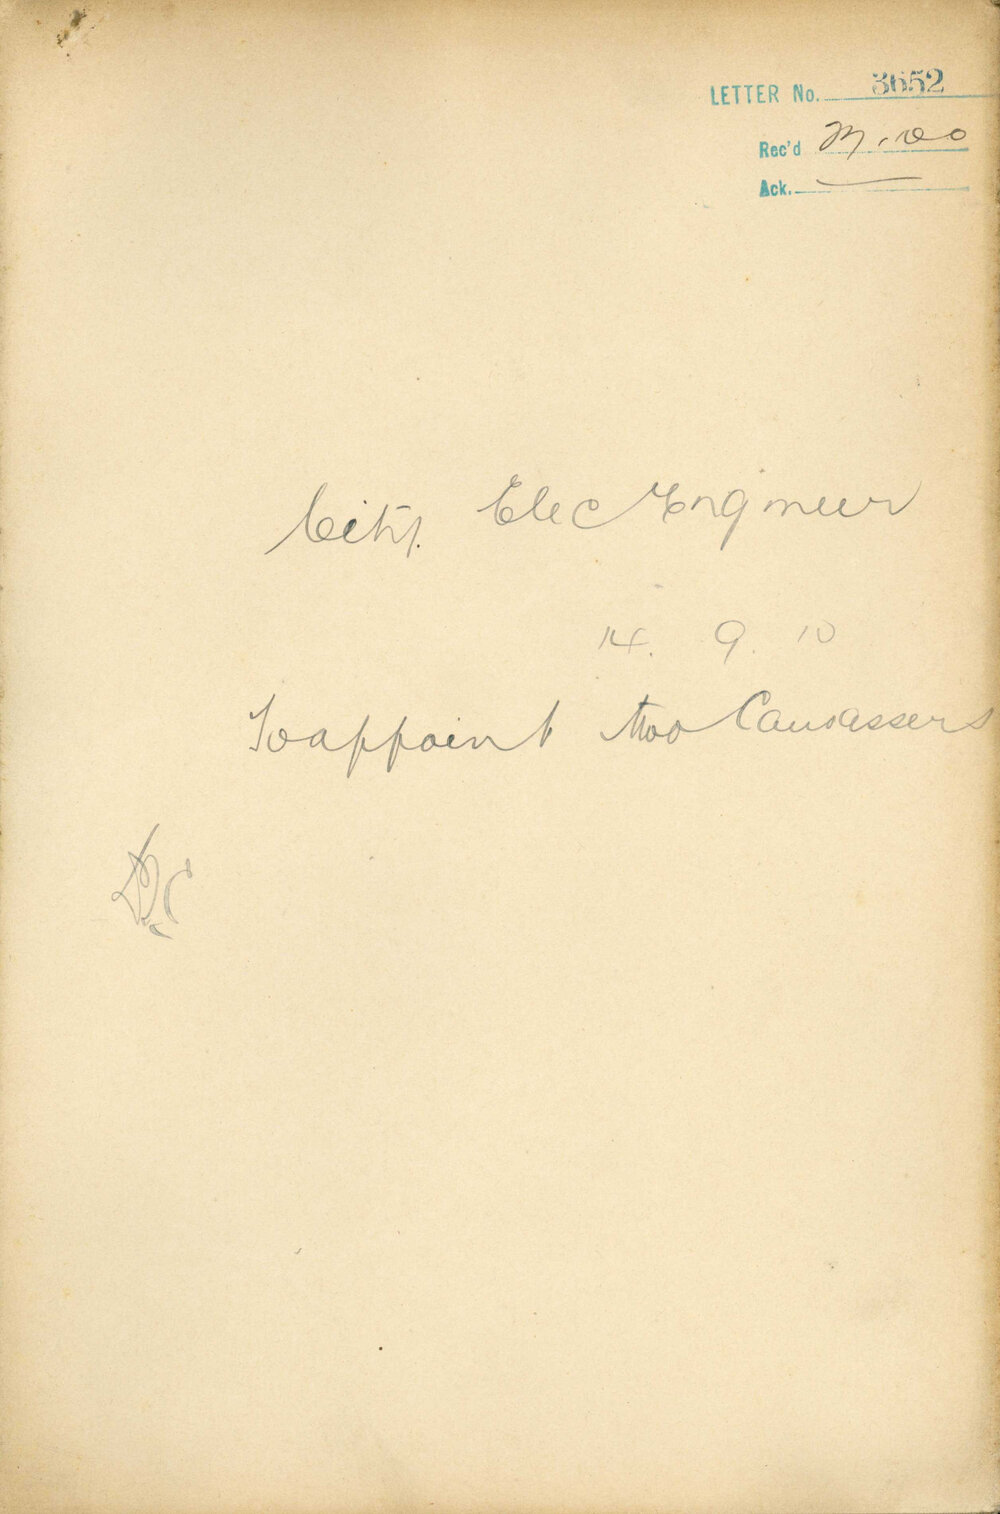 LETTER No. 3652
Rec'd
Ack.
City Elec Engineer
14. 9. 10
To appoint two Canvassers